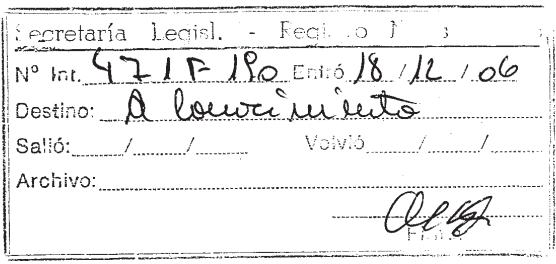 Secretaría Legisl. -
Nº Int. 471 F 190 Entró 18/12/06
Destino: A Conocimiento
Salió: / / Volvió / /
Archivo: